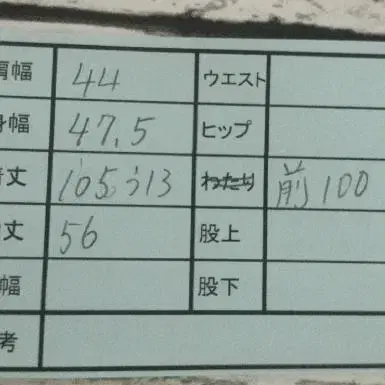 肩幅 44 ウエスト
身幅 47.5 ヒップ
着丈 105 う113 わたり 前100
丈 56 股上
幅 股下
考